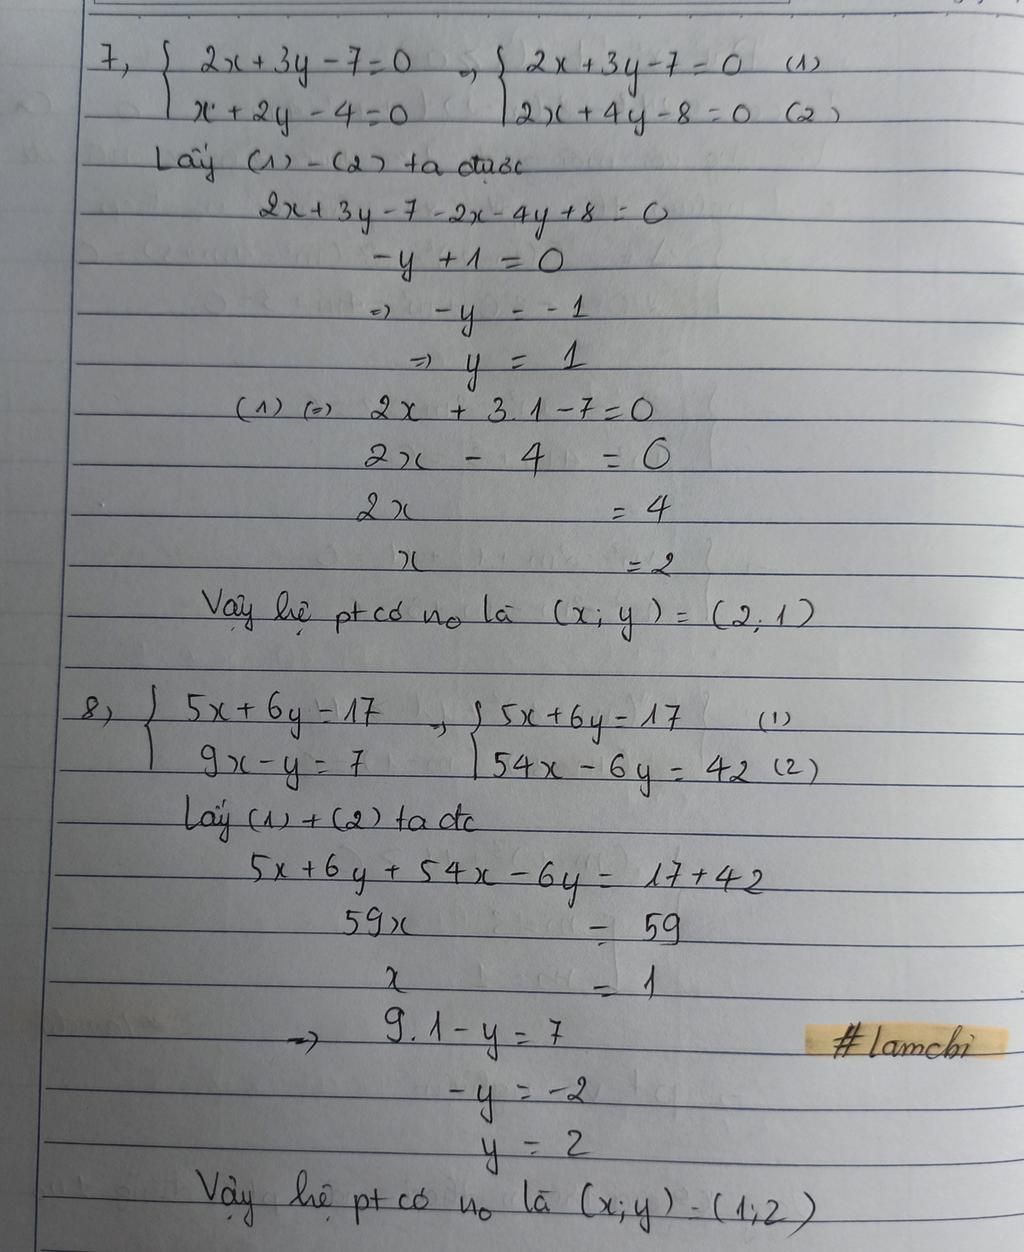 7, { 2x + 3y - 7 = 0 => { 2x + 3y - 7 = 0 (1)
x + 2y - 4 = 0 2x + 4y - 8 = 0 (2)
Lấy (1) - (2) ta được
2x + 3y - 7 - 2x - 4y + 8 = 0
-y + 1 = 0
=> -y = -1
=> y = 1
(1) (=) 2x + 3.1 - 7 = 0
2x - 4 = 0
2x = 4
x = 2
Vậy hệ pt có no là (x; y) = (2; 1)
8, { 5x + 6y = 17 => { 5x + 6y = 17 (1)
9x - y = 7 54x - 6y = 42 (2)
Lấy (1) + (2) ta đc
5x + 6y + 54x - 6y = 17 + 42
59x = 59
x = 1
=> 9.1 - y = 7
#lamchi
-y = -2
y = 2
Vậy hệ pt có no là (x; y) = (1; 2)